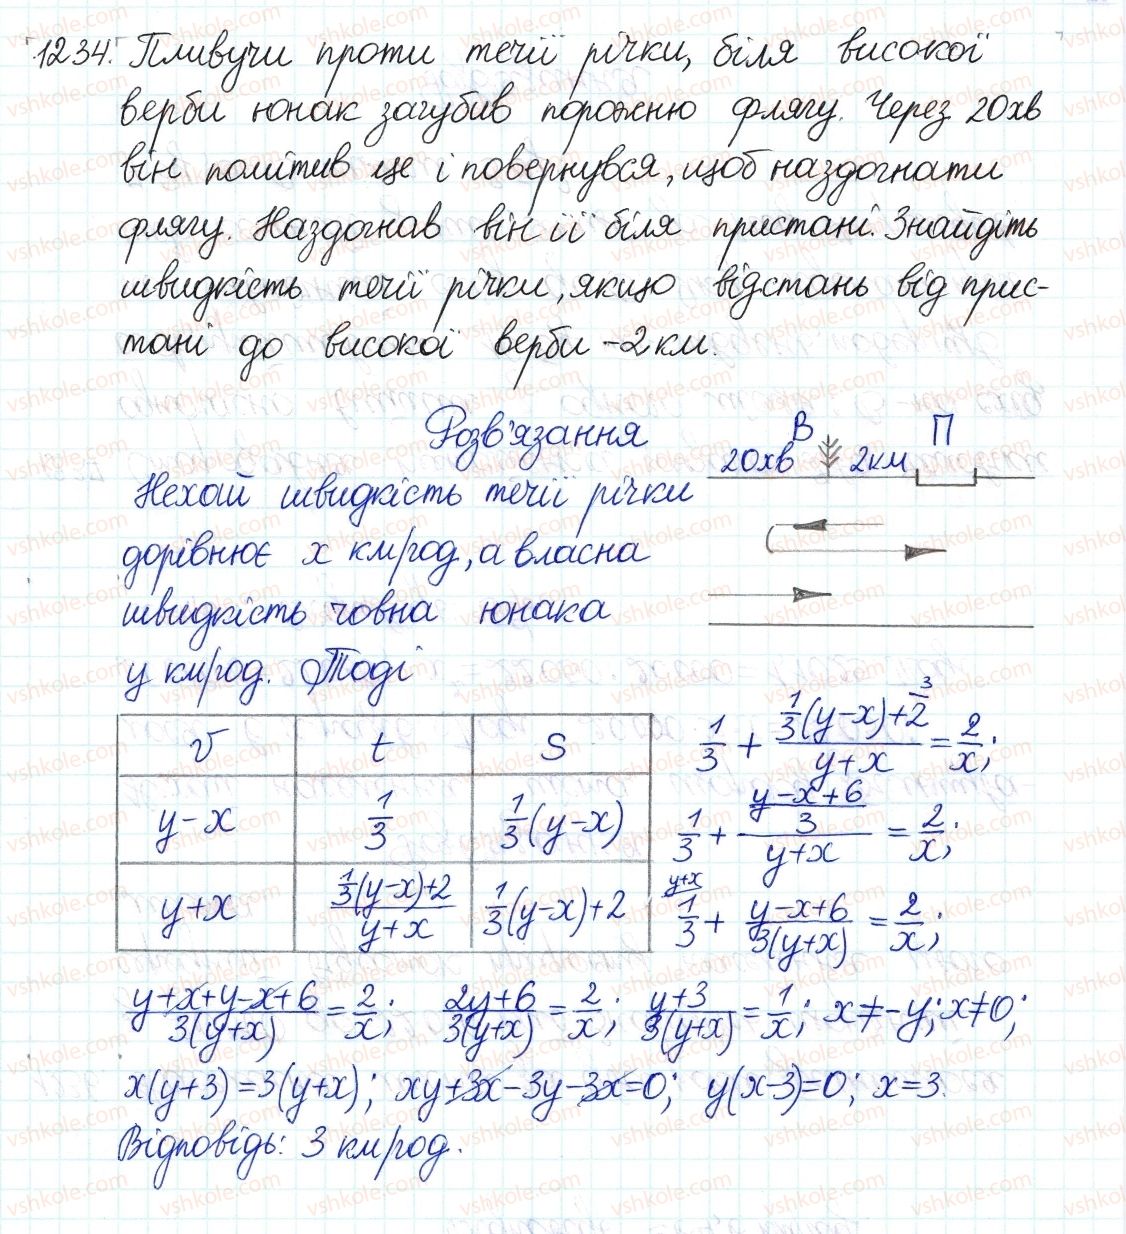 1234. Пливучи проти течії річки, біля високої
верби юнак загубив порожню флягу. Через 20хв
він помітив це і повернувся, щоб наздогнати
флягу. Наздогнав він її біля пристані. Знайдіть
швидкість течії річки, якщо відстань від прис-
тані до високої верби – 2 км.
Розв'язання
В П
20хв 2км
Нехай швидкість течії річки
дорівнює x км/год, а власна
швидкість човна юнака
y км/год. Тоді
v t S
y-x 1/3 1/3(y-x)
y+x (1/3(y-x)+2)/(y+x) 1/3(y-x)+2
1/3 + (1/3(y-x)+2)/(y+x) = 2/x;
1/3 + ((y-x+6)/3)/(y+x) = 2/x;
1/3 + (y-x+6)/(3(y+x)) = 2/x;
(y+x+y-x+6)/(3(y+x)) = 2/x; (2y+6)/(3(y+x)) = 2/x; (y+3)/(3(y+x)) = 1/x; x≠-y; x≠0;
x(y+3)=3(y+x); xy+3x-3y-3x=0; y(x-3)=0; x=3.
Відповідь: 3 км/год.
vshkole.com